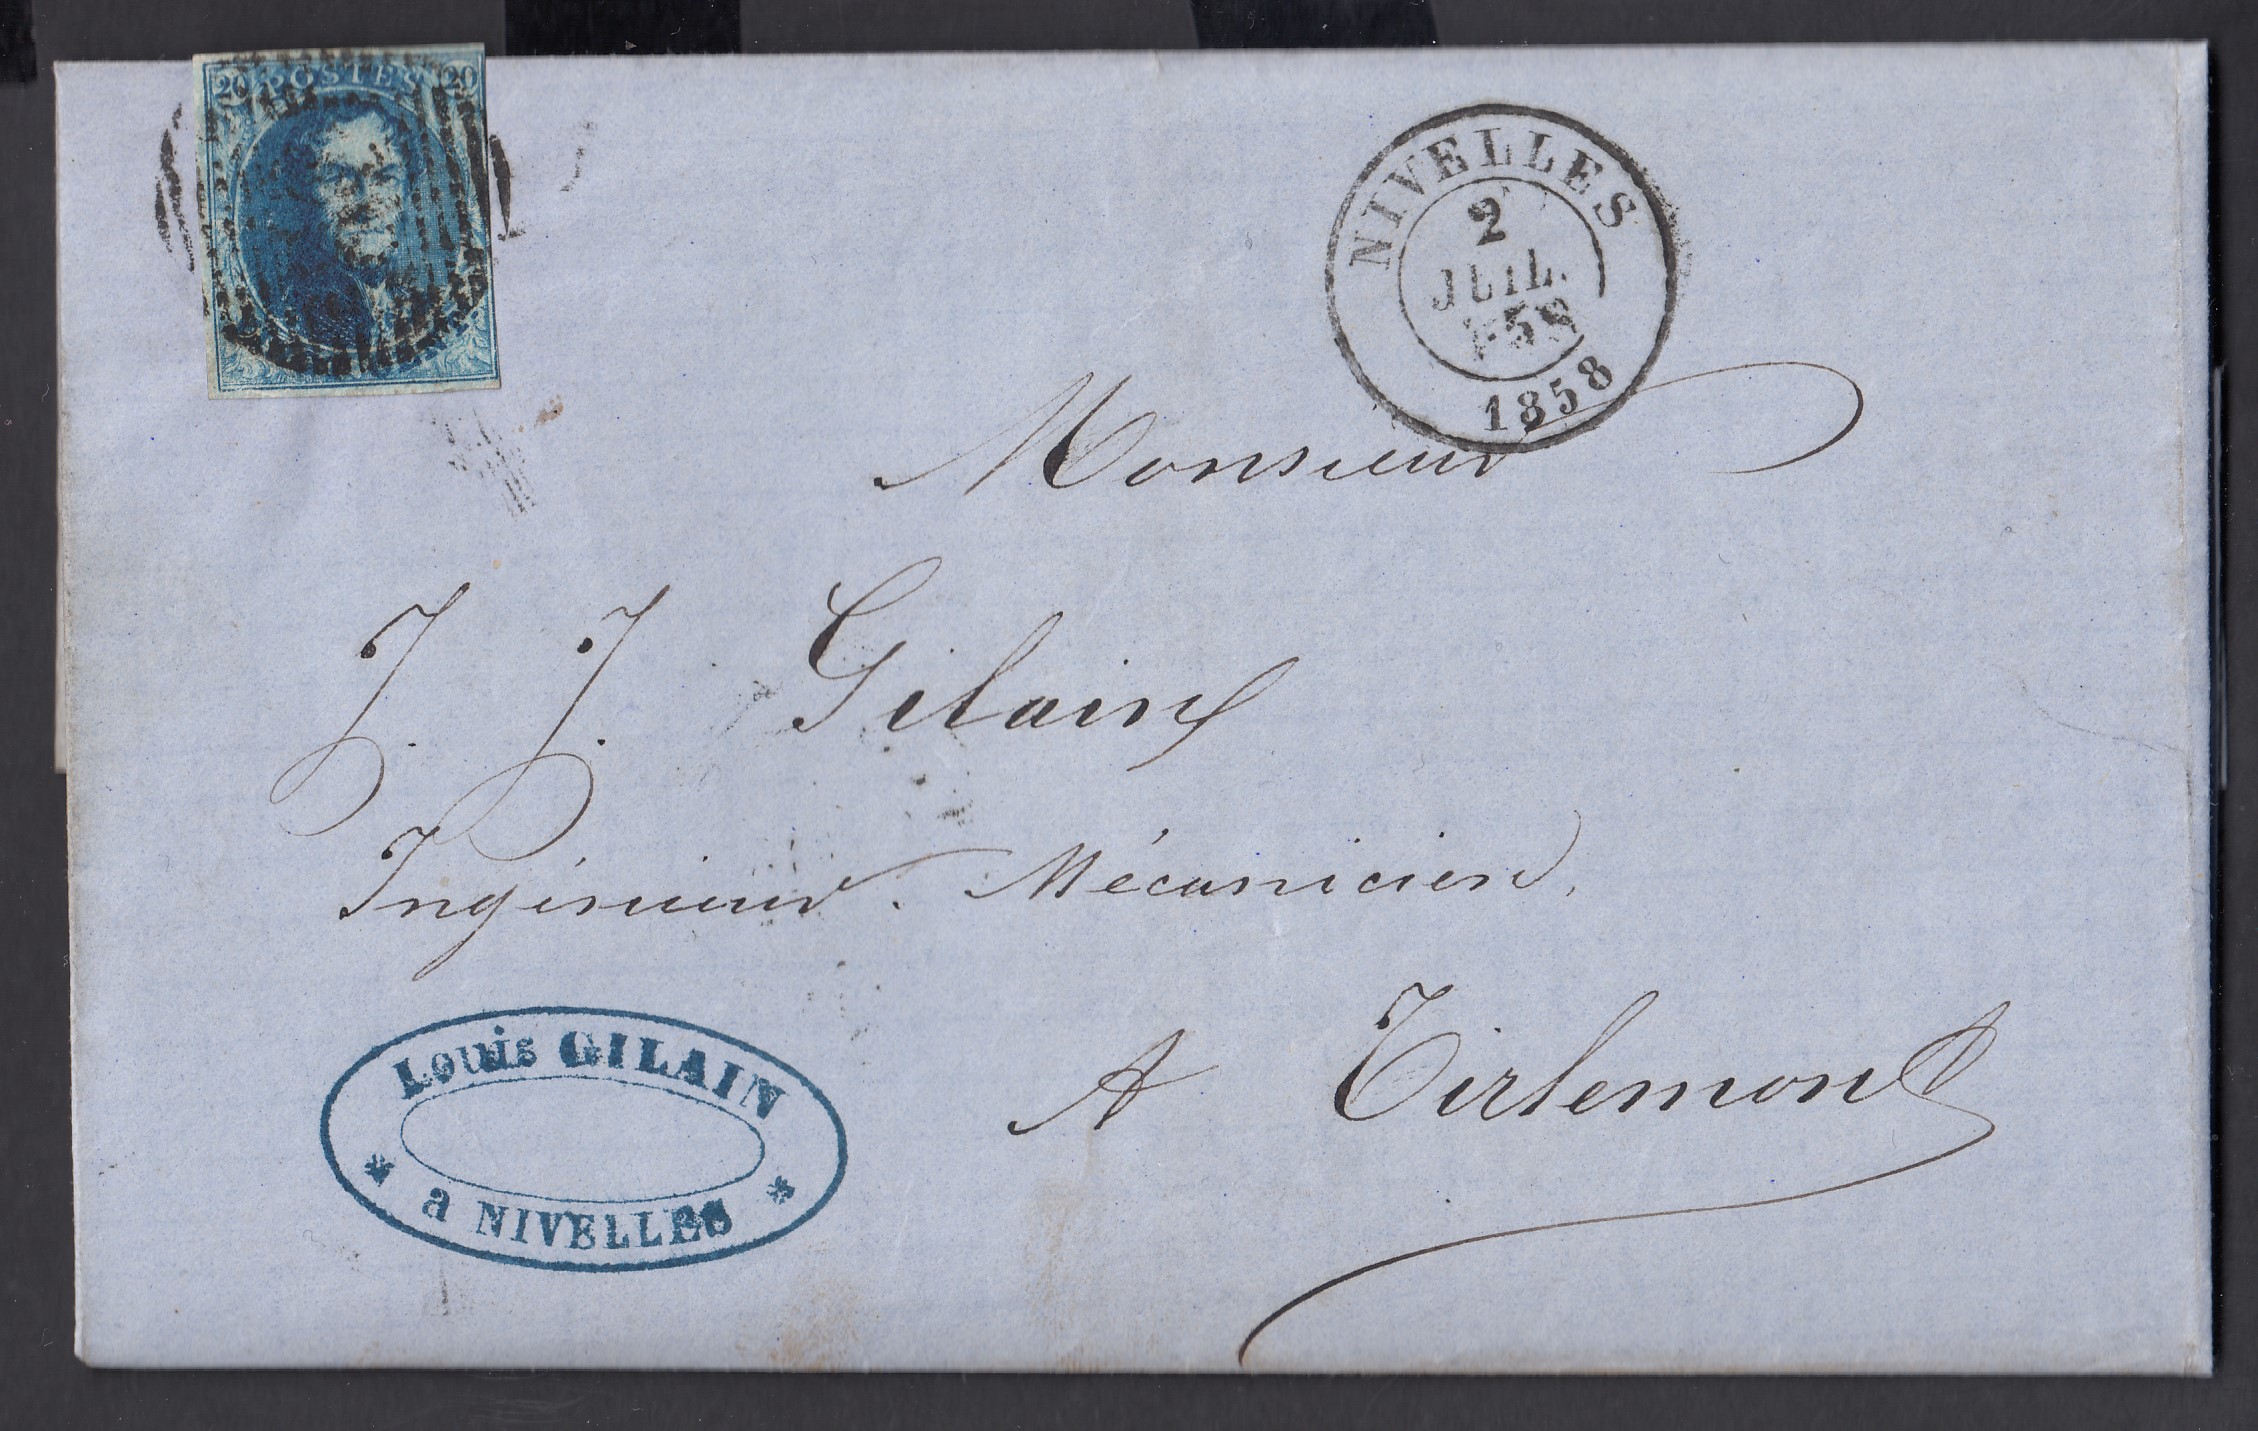 20 POSTES 20
NIVELLES
2
JUIL.
1858
Monsieur
J. J. Gilain
Ingénieur Mécanicien,
A Tirlemont
Louis GILAIN
* a NIVELLES *